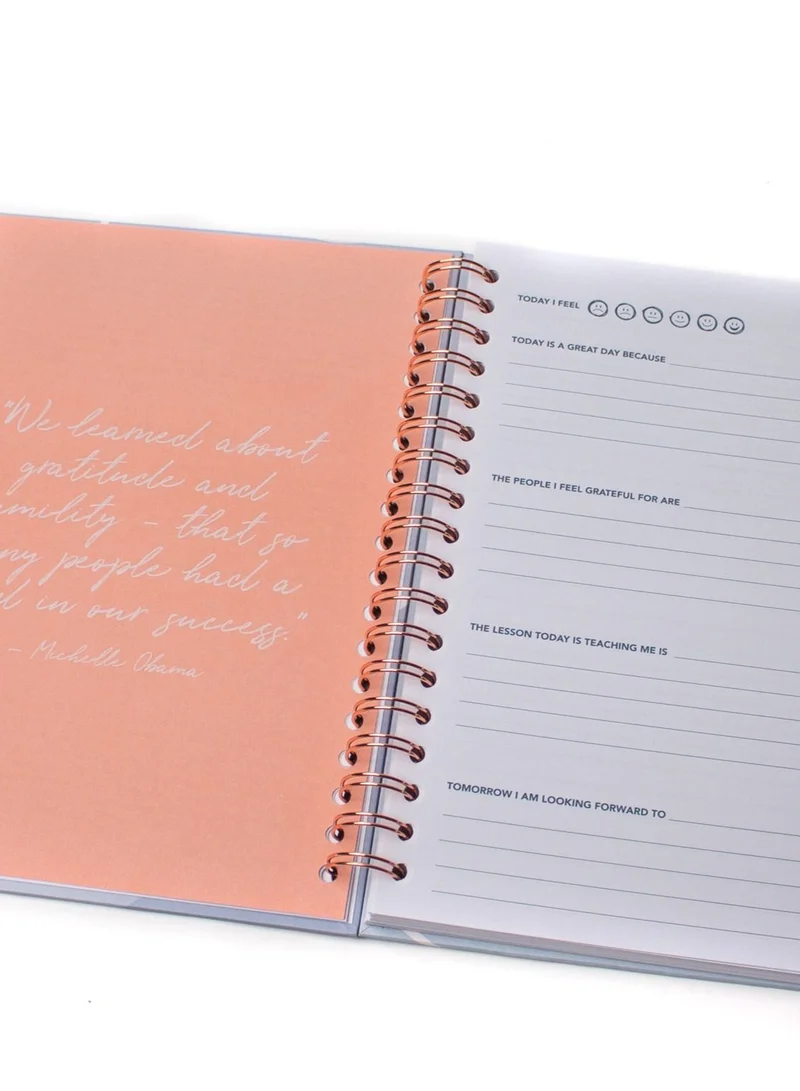 "We learned about
gratitude and
mility - that so
ny people had a
in our success."
- Michelle Obama
TODAY I FEEL
TODAY IS A GREAT DAY BECAUSE
THE PEOPLE I FEEL GRATEFUL FOR ARE
THE LESSON TODAY IS TEACHING ME IS
TOMORROW I AM LOOKING FORWARD TO